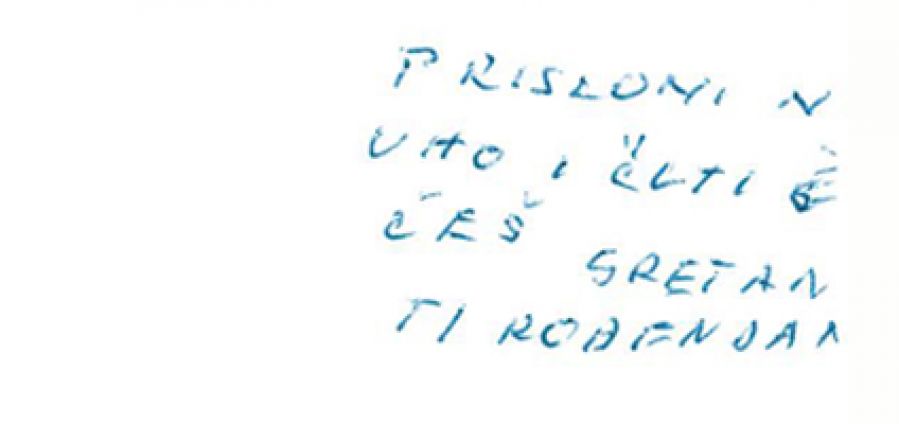 PRISLONI N
UHO I ČUTI Ć
ĆEŠ SRETAN
TI ROĐENDAN